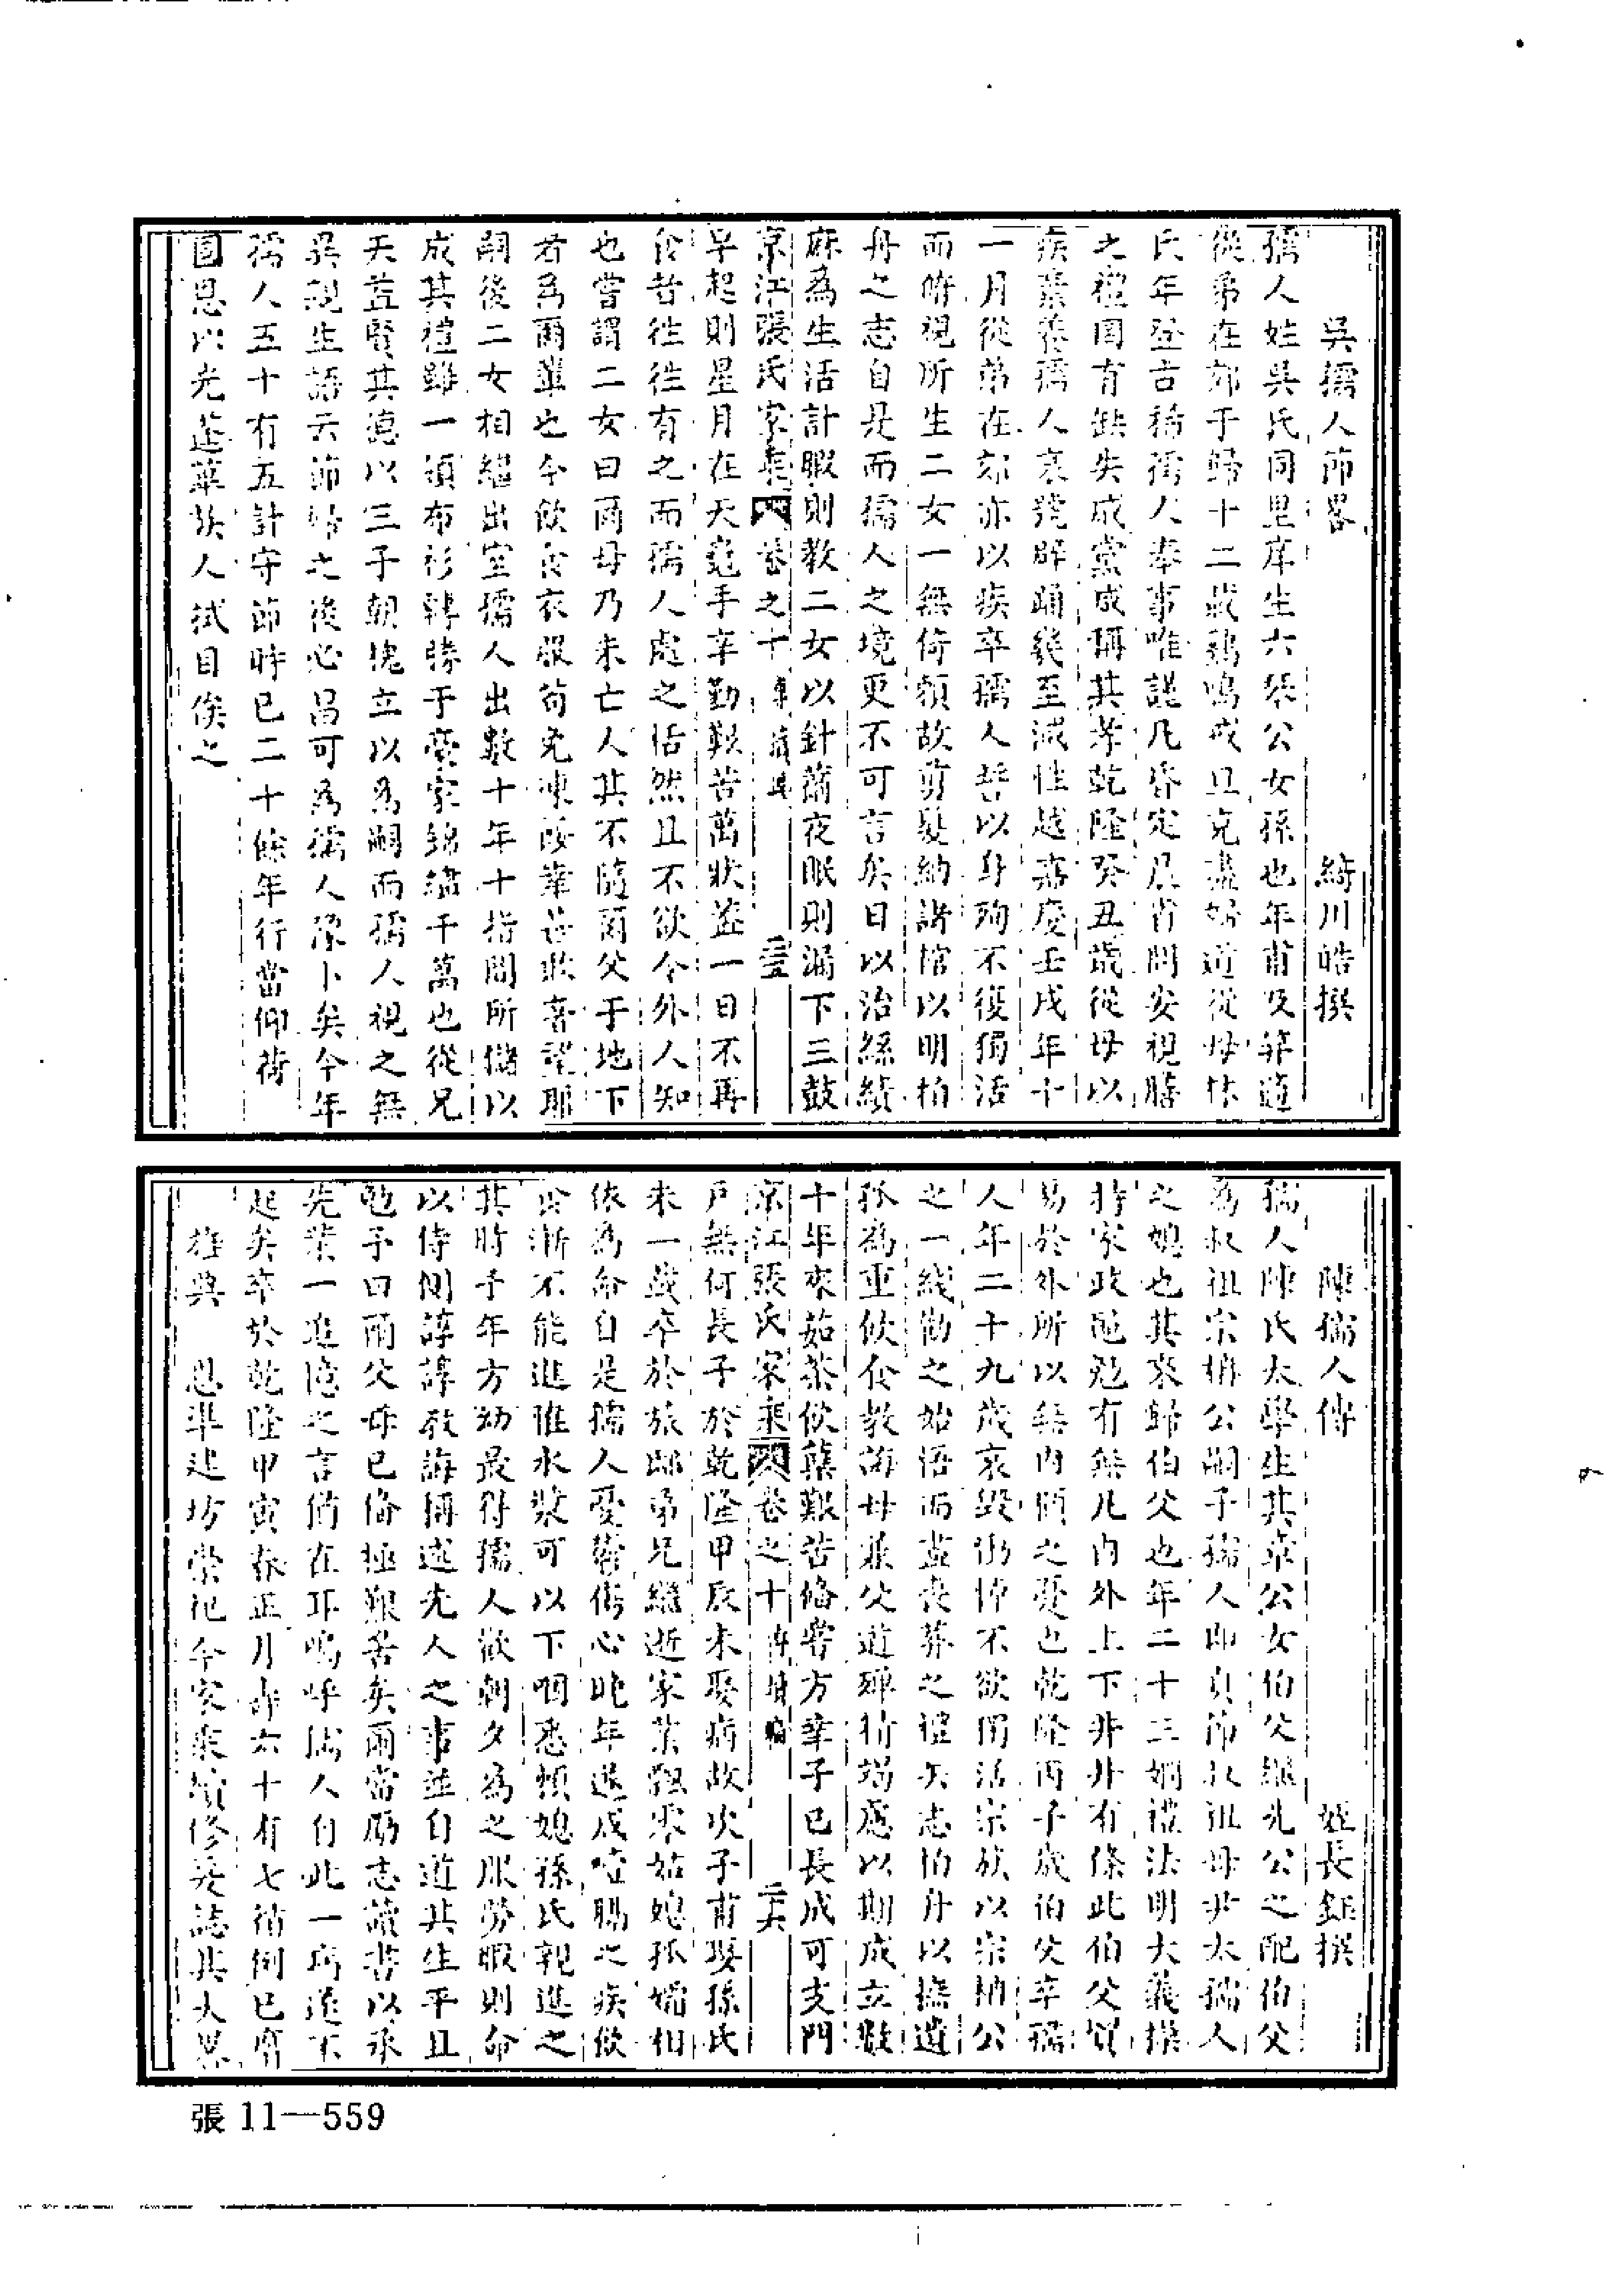 吳孺人節畧　綺川皓撰
孺人姓吳氏同里庠生六琴公女孫也年甫及笄適
從弟在郊于歸十二載鷄鳴戒旦克盡婦道從母林
氏年登古稀孺人奉事唯謹凡昏定晨省問安視膳
之禮罔有缺失戚黨咸稱其孝乾隆癸丑歲從母以
疾棄養孺人哀號辟踊幾至滅性越嘉慶壬戌年十
一月從弟在郊亦以疾卒孺人誓以身殉不復獨活
而俯視所生二女一無倚賴故剪髮納諸棺以明柏
舟之志自是而孺人之境更不可言矣日以治絲績
麻為生活計暇則教二女以針黹夜眠則漏下三鼓
京江張氏家乘　卷之十　三五
早起則星月在天龜手辛勤艱苦萬狀蓋一日不再
食者往往有之而孺人處之恬然且不欲令外人知
也嘗謂二女曰爾母乃未亡人其不隨爾父于地下
者為爾輩也今飲食衣服苟免凍餒華甘敢奢望耶
嗣後二女相繼出室孺人出數十年十指間所儲以
成其禮雖一領布衫轉勝于豪家錦繡千萬也從兄
天蓋賢其德以三子朝槐立以為嗣而孺人視之無
異親生語云節婦之後必昌可為孺人豫卜矣今年
孺人五十有五計守節時已二十餘年行當仰荷
國恩以光蓬蓽族人拭目俟之
陳孺人傳　姪長鉅撰
孺人陳氏太學生其章公女伯父繼先公之配伯父
為叔祖宗楠公嗣子孺人即貞節叔祖母尹太孺人
之媳也其來歸伯父也年二十三嫻禮法明大義操
持家政黽勉有無凡內外上下井井有條此伯父貿
易於外所以無內顧之憂也乾隆丙子歲伯父卒孺
人年二十九歲哀毀傷悼不欲獨活宗族以宗楠公
之一綫勸之始悟而盡喪葬之禮矢志柏舟以撫遺
孤為重飲食教誨母兼父道殫精竭慮以期成立數
十年來茹荼飲蘖艱苦備嘗方幸子已長成可支門
京江張氏家乘　卷之十　三六
戶無何長子於乾隆甲辰未娶病故次子甫娶孫氏
未一歲卒於旅邸弟兄繼逝家業凋零姑媳孤孀相
依為命自是孺人憂鬱傷心晚年遂成噎膈之疾飲
食漸不能進惟水漿可以下咽悉賴媳孫氏親進之
其時予年方幼最得孺人歡朝夕為之服勞暇則命
以侍側諄諄教誨稱述先人之事並自道其生平且
勉予曰爾父母已備極艱苦矣爾當勵志讀書以承
先業一追憶之言猶在耳嗚呼孺人自此一病遂不
起矣卒於乾隆甲寅春正月壽六十有七循例已膺
旌典　恩準建坊崇祀今家乘續修爰誌其大畧
張11—559